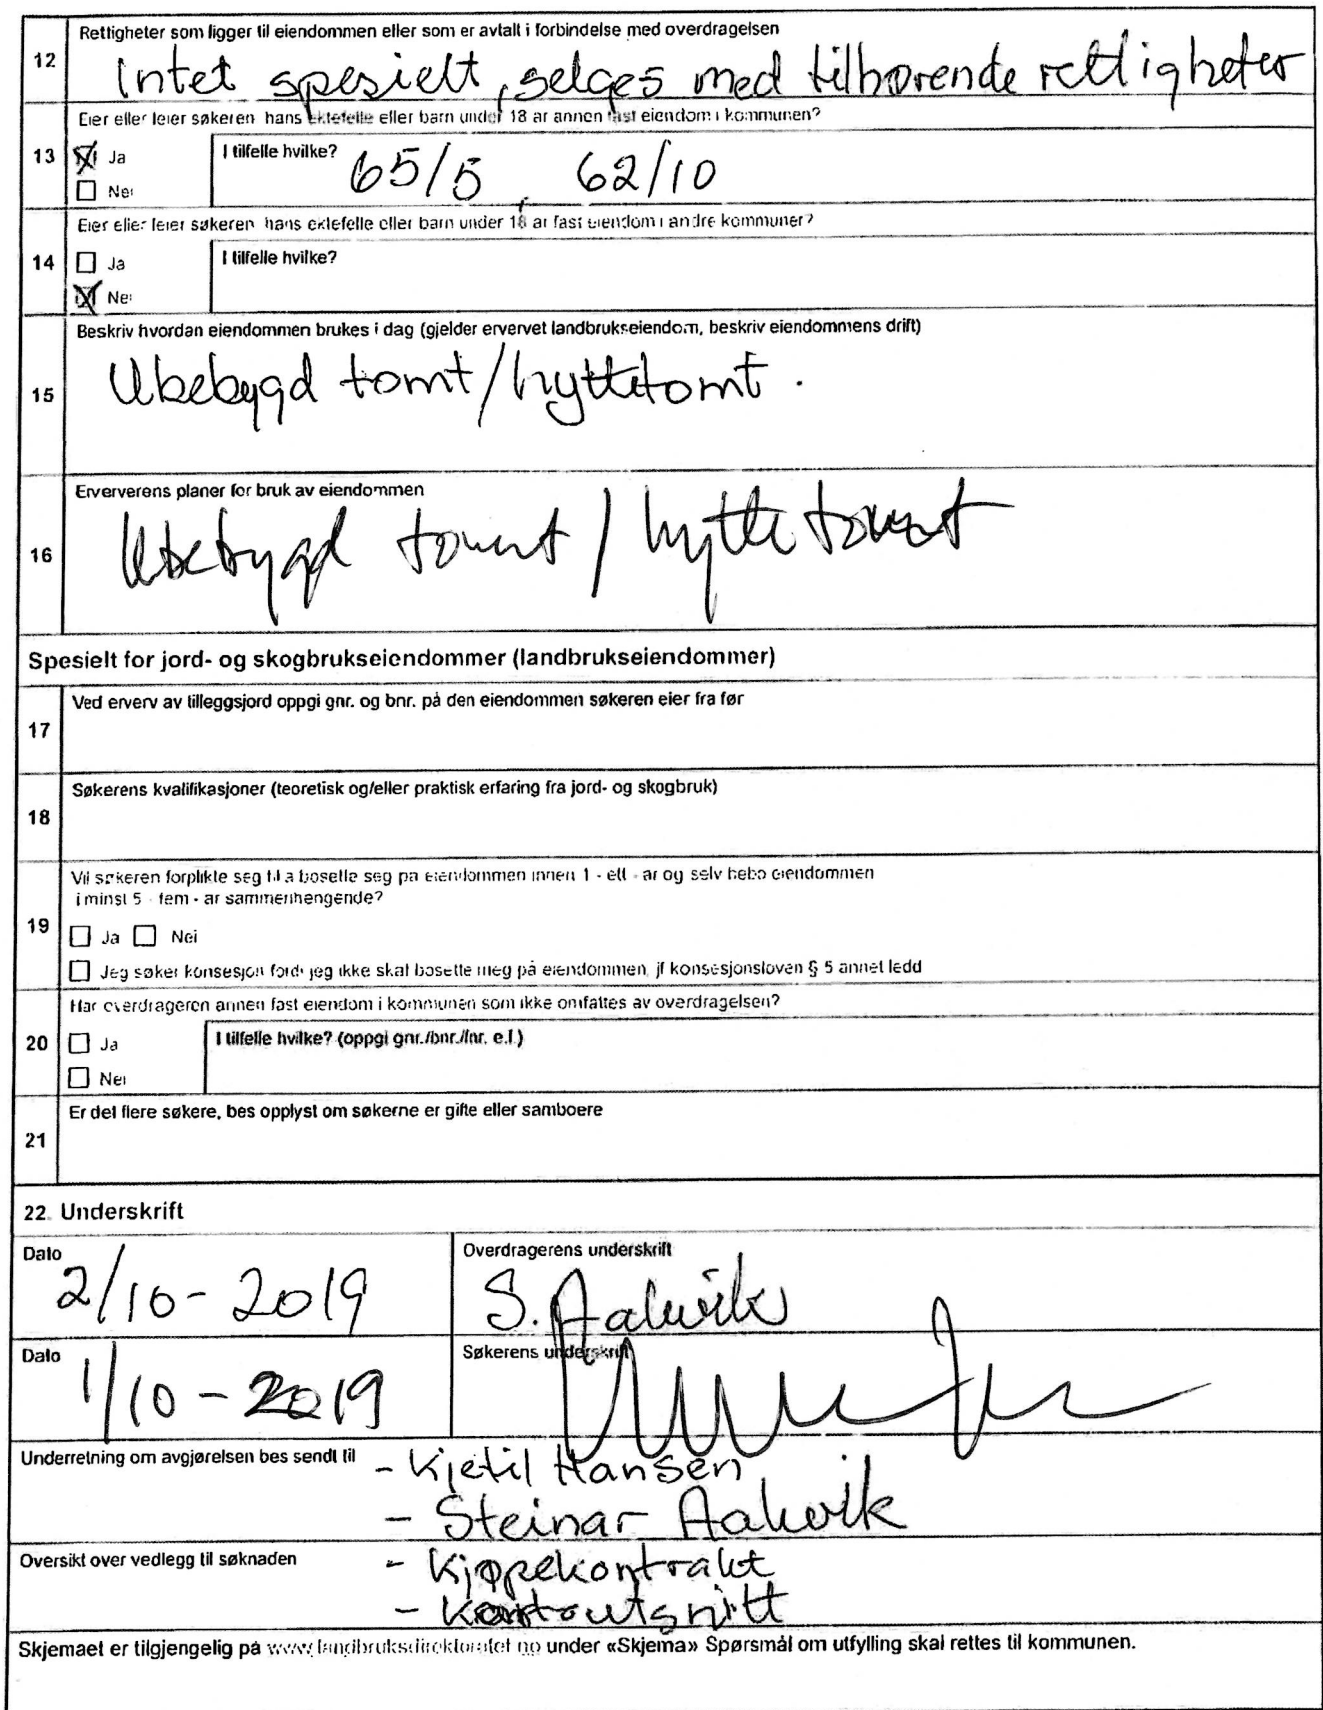 12
Rettigheter som ligger til eiendommen eller som er avtalt i forbindelse med overdragelsen
Intet spesielt, selges med tilhørende rettigheter
Eier eller leier søkeren hans ektefelle eller barn under 18 år annen fast eiendom i kommunen?
13
Ja
Nei
I tilfelle hvilke?
65/5, 62/10
Eier eller leier søkeren hans ektefelle eller barn under 18 år fast eiendom i andre kommuner?
14
Ja
Nei
I tilfelle hvilke?
Beskriv hvordan eiendommen brukes i dag (gjelder ervervet landbrukseiendom, beskriv eiendommens drift)
15
Ubebygd tomt/hyttetomt.
Erververens planer for bruk av eiendommen
16
Ubebygd tomt/hyttetomt
Spesielt for jord- og skogbrukseiendommer (landbrukseiendommer)
Ved erverv av tilleggsjord oppgi gnr. og bnr. på den eiendommen søkeren eier fra før
17
Søkerens kvalifikasjoner (teoretisk og/eller praktisk erfaring fra jord- og skogbruk)
18
Vil søkeren forplikte seg til å bosette seg på eiendommen innen 1 - ett - år og selv bebo eiendommen
i minst 5 - fem - år sammenhengende?
19
Ja Nei
Jeg søker konsesjon fordi jeg ikke skal bosette meg på eiendommen, jf konsesjonsloven § 5 annet ledd
Har overdrageren annen fast eiendom i kommunen som ikke omfattes av overdragelsen?
20
Ja
Nei
I tilfelle hvilke? (oppgi gnr./bnr./fnr. e.l.)
Er det flere søkere, bes opplyst om søkerne er gifte eller samboere
21
22. Underskrift
Dato
2/10-2019
Overdragerens underskrift
S. Aakvik
Dato
1/10-2019
Søkerens underskrift
Underretning om avgjørelsen bes sendt til
- Kjetil Hansen
- Steinar Aakvik
Oversikt over vedlegg til søknaden
- Kjøpekontrakt
- Kartutsnitt
Skjemaet er tilgjengelig på www.landbruksdirektoratet.no under «Skjema» Spørsmål om utfylling skal rettes til kommunen.